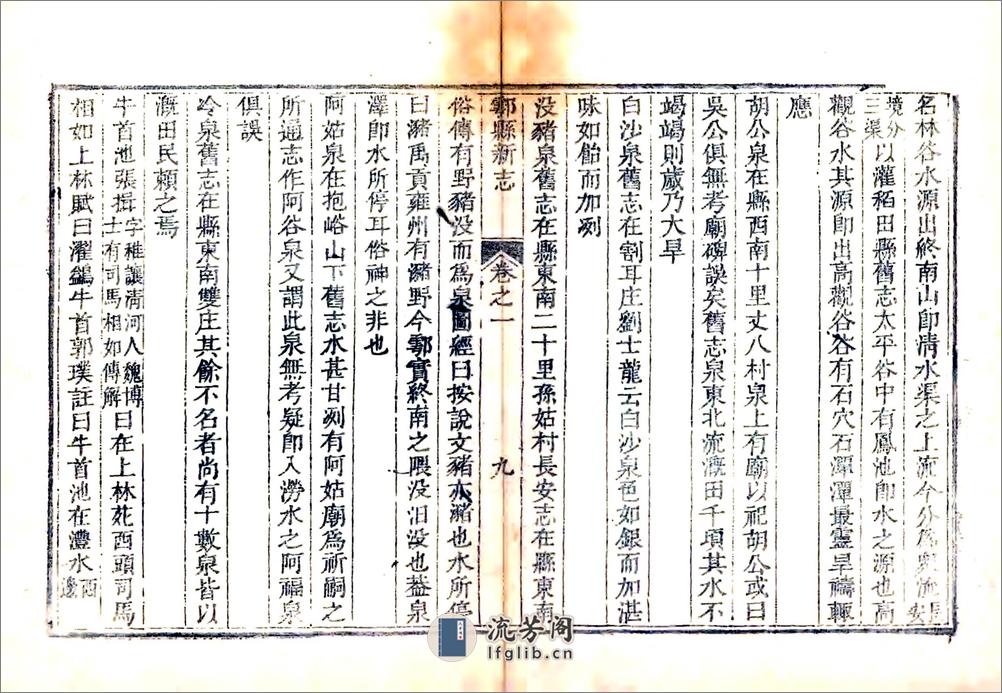 名林谷水源出終南山即清水渠之上流今分爲與流長安
境分三渠以灌稻田縣舊志太平谷中有鳳池即水之源也高
觀谷水其源即出高觀谷谷有石穴石潭潭最靈旱禱輒
應
胡公泉在縣西南十里丈八村泉上有廟以祀胡公或曰
吳公俱無考廟碑誤矣舊志泉東北流漑田千頃其水不
竭竭則歲乃大旱
白沙泉舊志在割耳庄劉士龍云白沙泉色如銀而加湛
味如飴而加冽
没豬泉舊志在縣東南二十里孫姑村長安志在縣東南
鄠縣新志 卷之一 九
俗傳有野豬没而爲泉圖經曰按說文豬亦瀦也水所停
曰瀦禹貢雍州有瀦野今鄠實終南之隈没汨没也益泉
澤即水所停耳俗神之非也
阿姑泉在抱峪山下舊志水甚甘冽有阿姑廟爲祈嗣之
所通志作阿谷泉又謂此泉無考疑即入澇水之阿福泉
俱誤
冷泉舊志在縣東南雙庄其餘不名者尚有十數泉皆以
漑田民頼之焉
牛首池張揖字稚讓清河人魏博士有司馬相如傳解曰在上林苑西頭司馬
相如上林賦曰濯鷁牛首郭璞註曰牛首池在灃水西邊
流芳阁
lfglib.cn